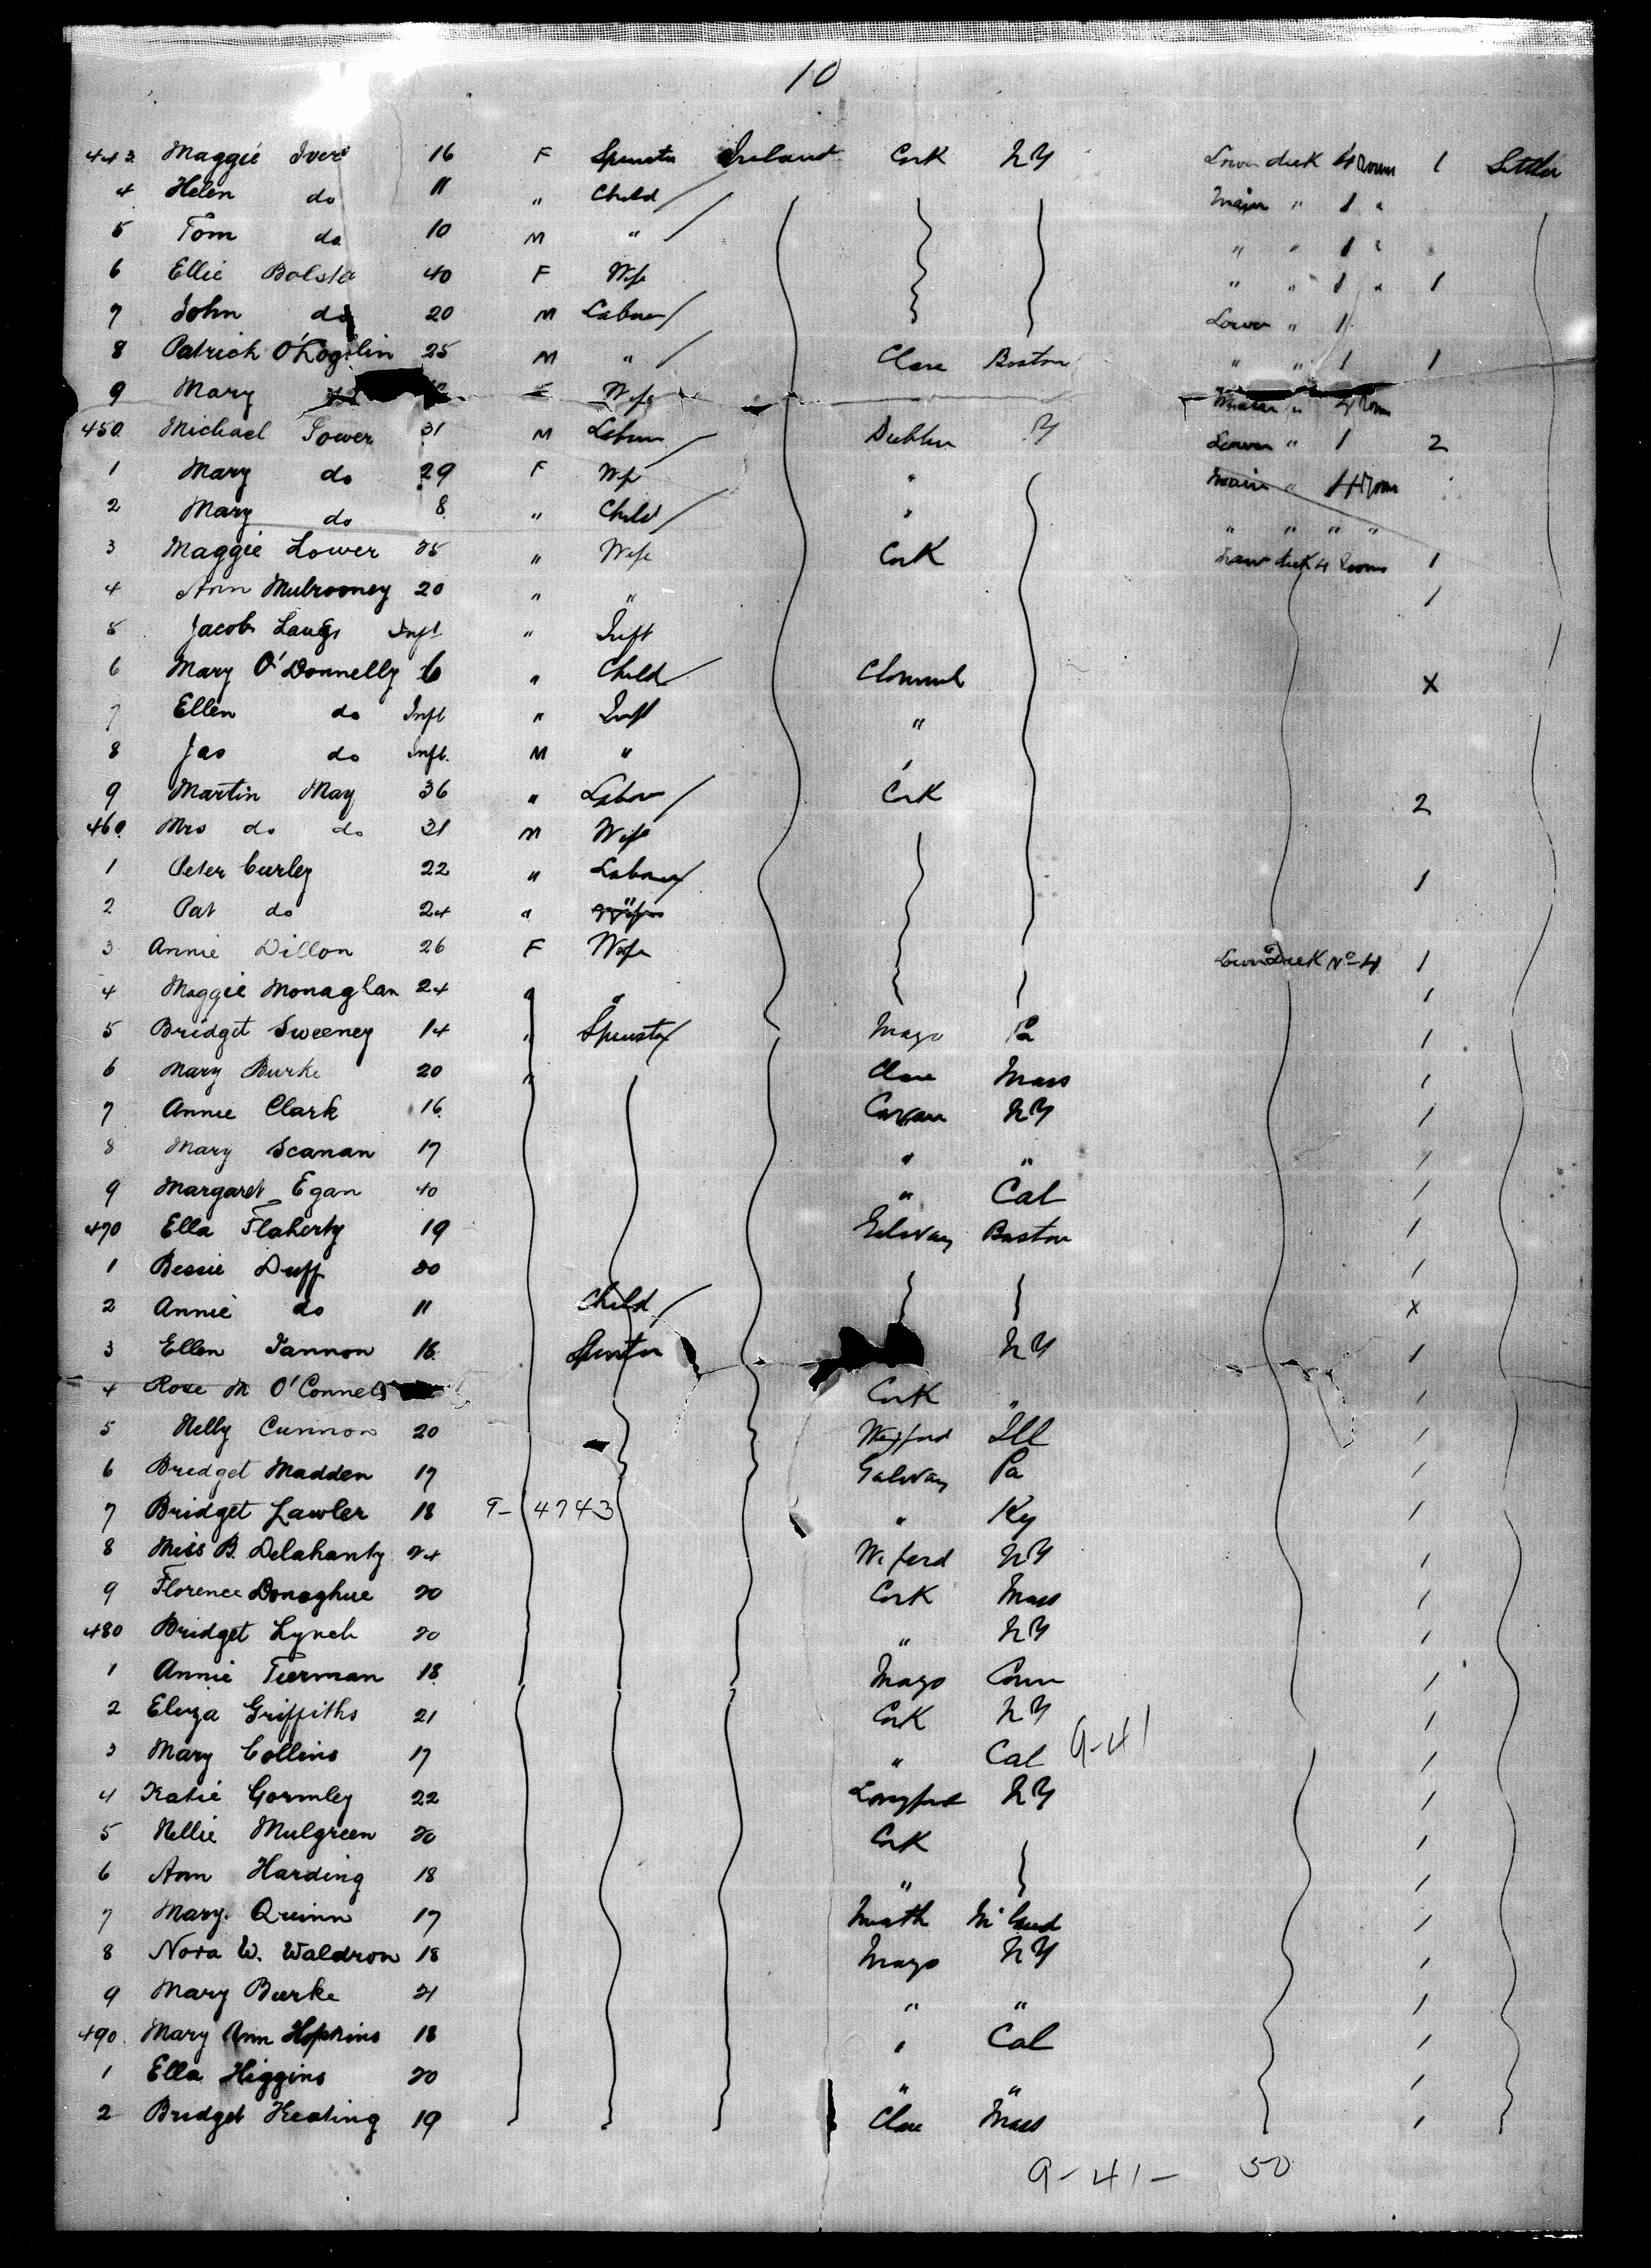 10
443 Maggie Ivers 16 F Spinster Ireland Cork NY Lower deck 4 Room 1 Settler
4 Helen do 11 " Child Main " 1 "
5 Tom do 10 M " " " 1 "
6 Ellie Bolster 40 F Wife " " 1 " 1
7 John do 20 M Labour Lower " 1
8 Patrick 25 M " Clare Boston " " 1 1
9 Mary Wife 4 Room
450 Michael Power 31 M Labour Dublin Y Lower " 1 2
1 Mary do 29 F Wife " Main " 4 Room
2 Mary do 8 " Child " " " " "
3 Maggie Lower 25 " Wife Cork deck 4 Room 1
4 Ann Mulrooney 20 " " 1
5 Jacob Inft " Inft
6 Mary O'Donnelly 6 " Child Clonmel X
7 Ellen do Inft " Inft "
8 Jas do Inft. M "
9 Martin May 36 " Labour Cork 2
460 Mrs do do 31 M Wife
1 Peter Curley 22 " Labour 1
2 Pat do 24 " "
3 Annie Dillon 26 F Wife Lower Deck No 4 1
4 Maggie Monaghan 24 " " 1
5 Bridget Sweeney 14 " Spinster Mayo Pa 1
6 Mary Burke 20 " Clare Mass 1
7 Annie Clark 16 Cavan NY 1
8 Mary Scanan 17 " " 1
9 Margaret Egan 40 " Cal 1
470 Ella Flaherty 19 Galway Boston 1
1 Bessie Duff 20 1
2 Annie do 11 Child X
3 Ellen Fannon 18 Spinster NY 1
4 Rose M O'Connell Cork " 1
5 Nelly Cunnon 20 Wexford Ill 1
6 Bridget Madden 17 Galway Pa 1
7 Bridget Lawler 18 9-4743 " Ky 1
8 Miss B. Delahanty 24 Wexford NY 1
9 Florence Donaghue 20 Cork Mass 1
480 Bridget Lynch 20 " NY 1
1 Annie Tierman 18 Mayo Conn 1
2 Eliza Griffiths 21 Cork NY 1
3 Mary Collins 17 " Cal 9-41 1
4 Katie Gormley 22 Longford NY 1
5 Nellie Mulgreen 20 Cork 1
6 Ann Harding 18 " 1
7 Mary Quinn 17 Meath 1
8 Nora W. Waldron 18 Mayo NY 1
9 Mary Burke 21 " " 1
490 Mary Ann Hopkins 18 " Cal 1
1 Ella Higgins 20 " " 1
2 Bridget Keating 19 Clare Mass 1
9-41- 50